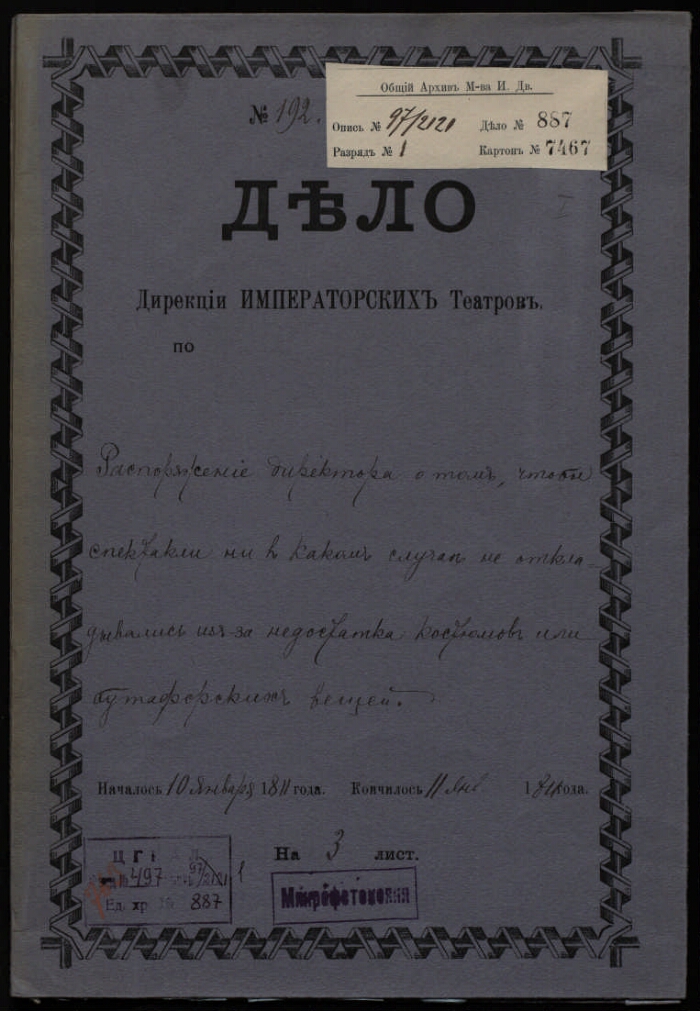 Общій Архивъ М-ва И. Дв.
Опись № 97/2121 Дѣло № 887
Разрядъ № 1 Картонъ № 7467
№ 192.
I
ДѢЛО
Дирекціи ИМПЕРАТОРСКИХЪ Театровъ.
по
Распоряженіе директора о томъ, чтобы
спектакли ни в какомъ случаѣ не откла-
дывались изъ-за недостатка костюмовъ или
бутафорскихъ вещей.
Началось 10 Января 1811 года. Кончилось 11 Янв 1811 года.
На 3 лист.
497 97/2121 1
Ед. хр. № 887
Микрофотокопия